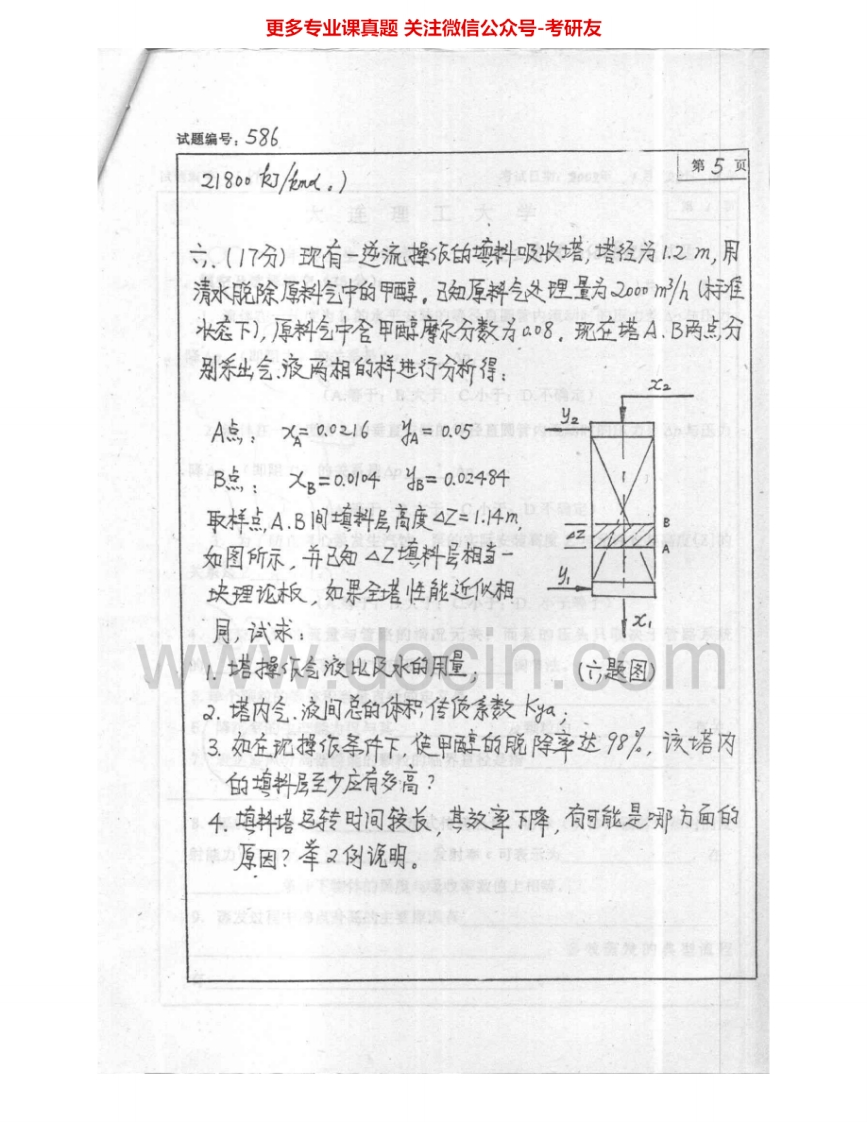 更多专业课真题 关注微信公众号-考研友
试题编号：586
第5页
21800 kJ/kmol。)
六、(17分) 现有一逆流操作的填料吸收塔，塔径为1.2 m，用
清水脱除原料气中的甲醇。已知原料气处理量为2000 m³/h (标准
状态下)，原料气中含甲醇摩尔分数为0.08。现在塔A、B两点分
别采出气、液两相的样进行分析得：
A点： x_A=0.0216 y_A=0.05
B点： x_B=0.0104 y_B=0.02484
取样点A、B间填料层高度ΔZ=1.14m，
如图所示，并已知ΔZ填料层相当一
块理论板，如果全塔性能近似相
同，试求：
x₂
y₂
B
ΔZ
A
y₁
x₁
(六题图)
1. 塔操作气液比及水的用量；
2. 塔内气、液间总的体积传质系数Kya；
3. 如在现操作条件下，使甲醇的脱除率达98%，该塔内
的填料层至少应有多高？
4. 填料塔运转时间较长，其效率下降，有可能是哪方面的
原因？举2例说明。
www.docin.com